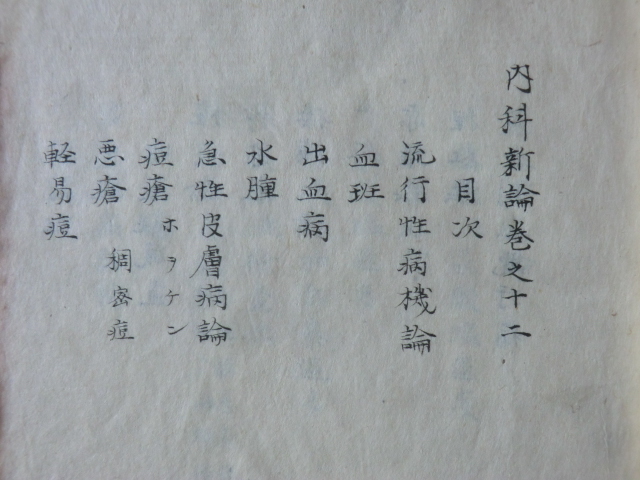 内科新論巻之十二
目次
流行性病機論
血班
出血病
水腫
急性皮膚病論
痘瘡 ホヲケン
悪瘡 稠密痘
軽易痘